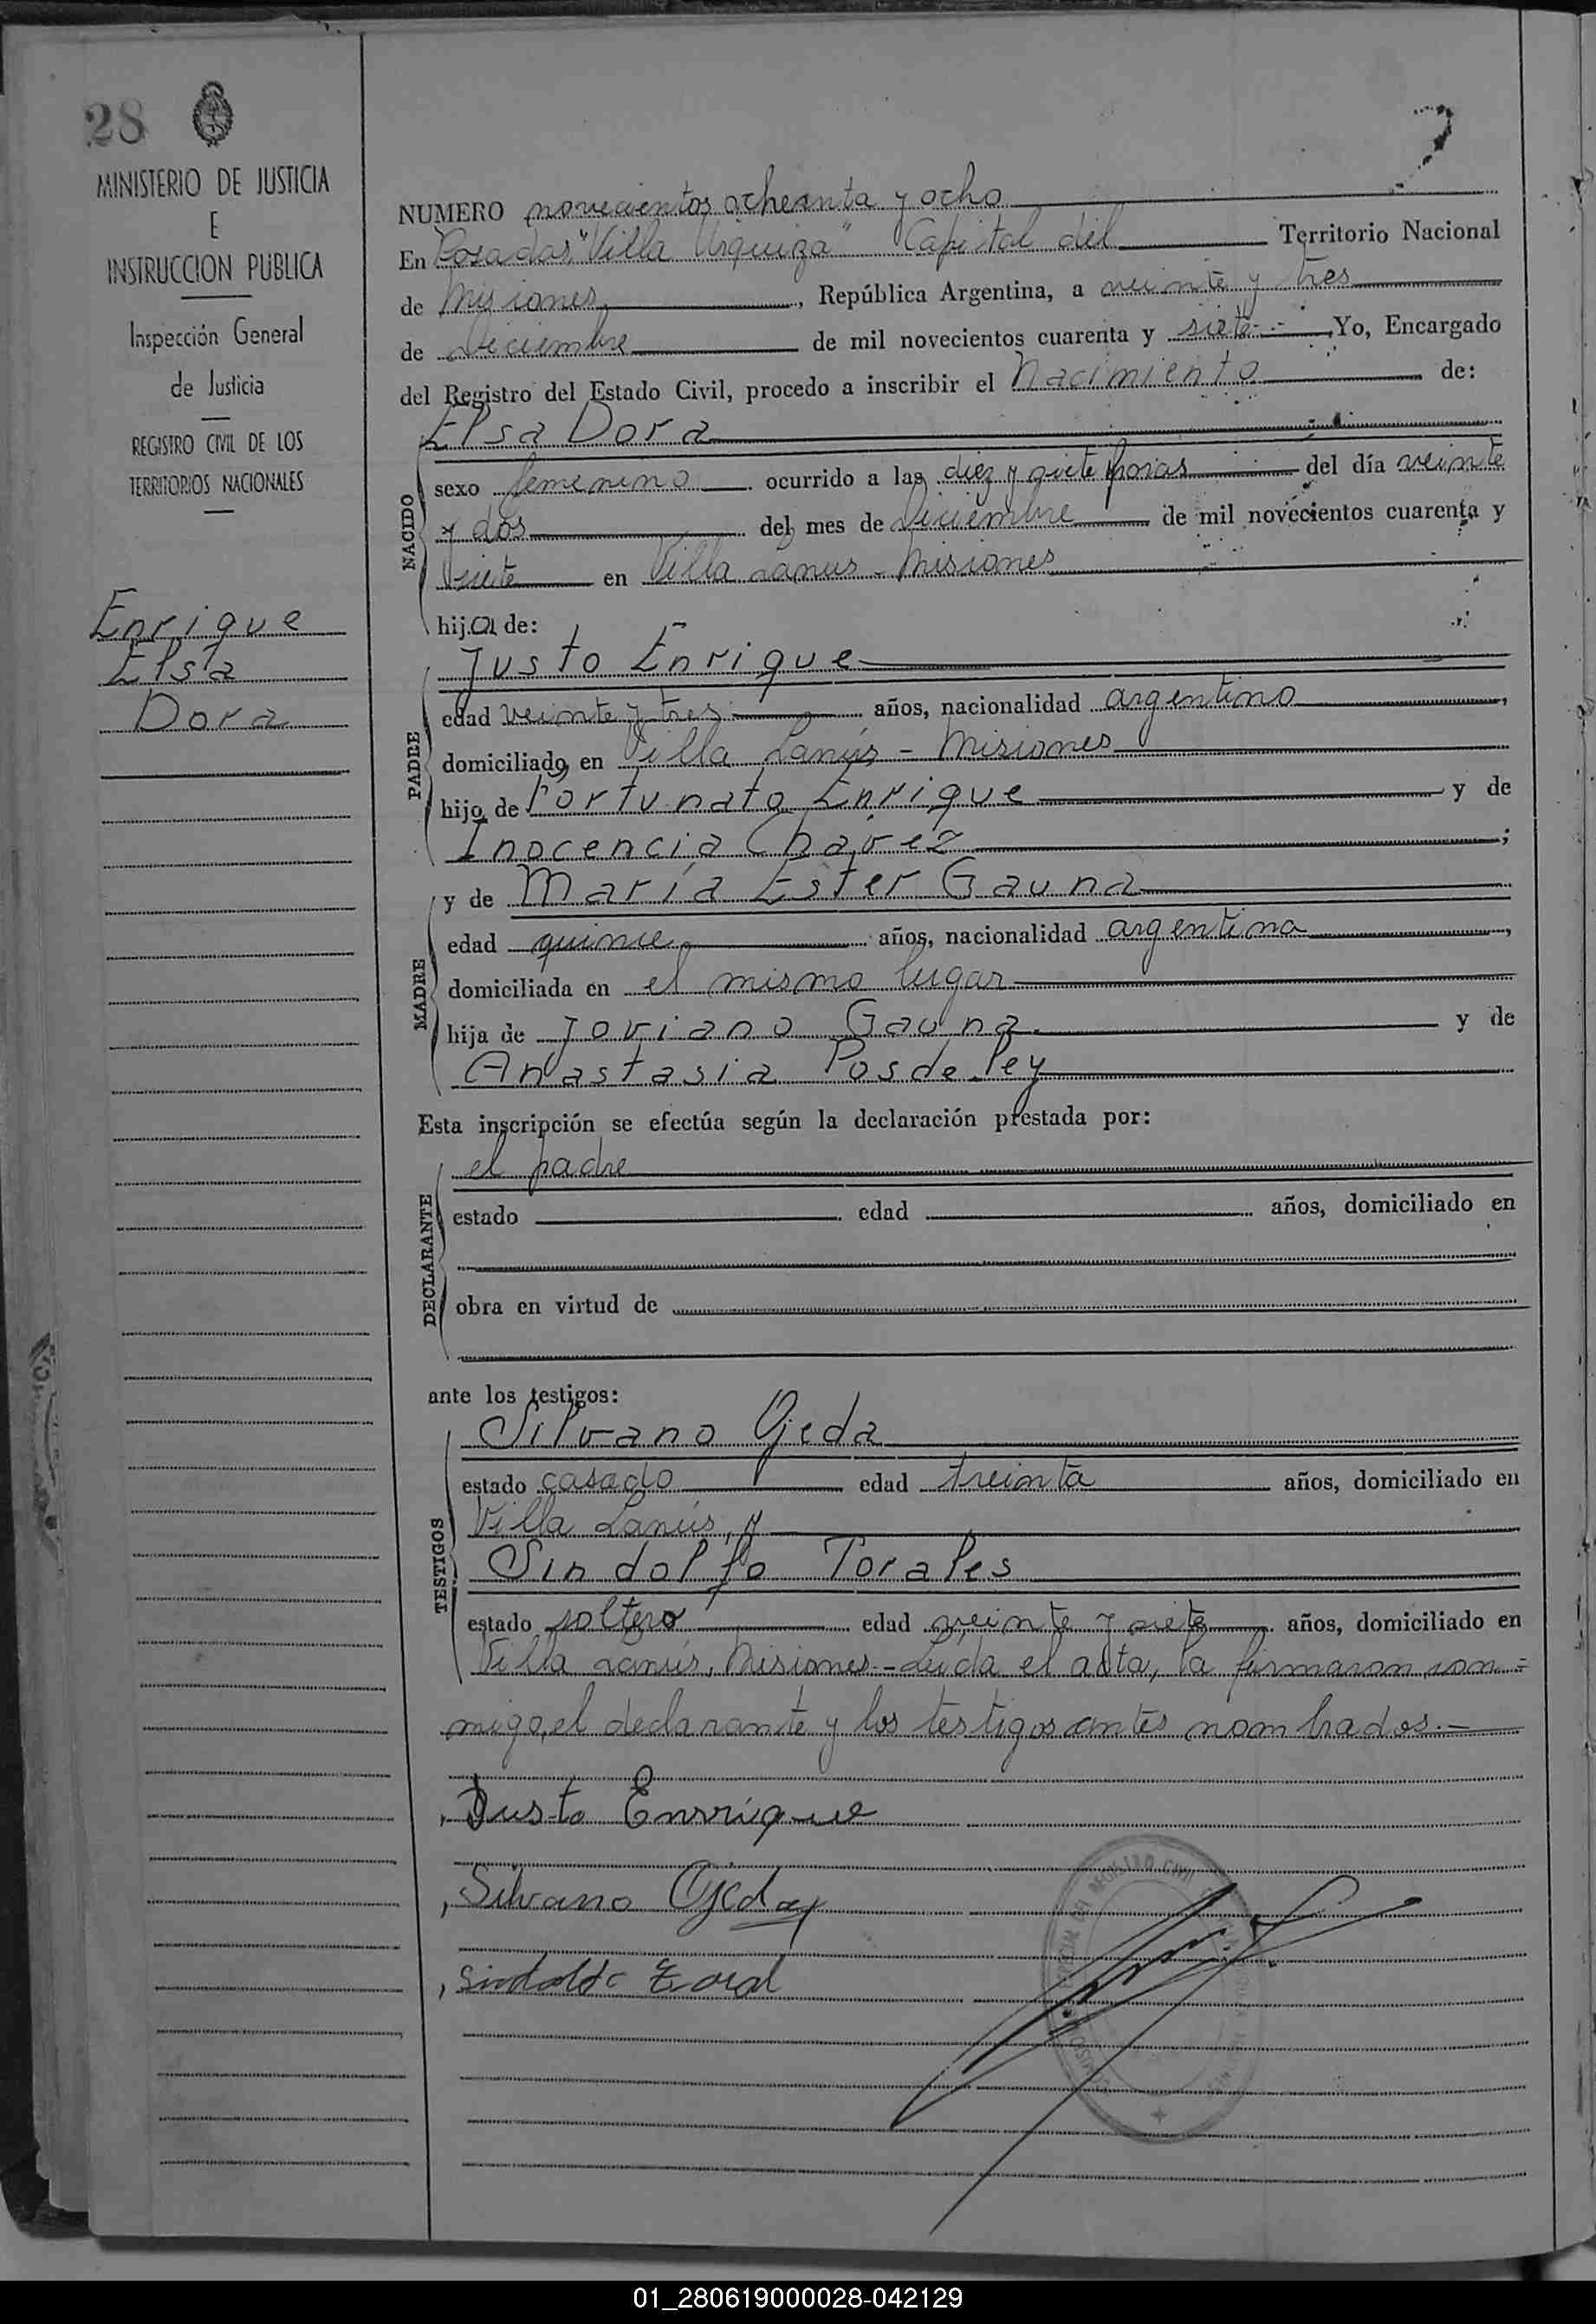 28
MINISTERIO DE JUSTICIA
E
INSTRUCCION PUBLICA
Inspección General
de Justicia
REGISTRO CIVIL DE LOS
TERRITORIOS NACIONALES
Enrique
Elsa
Dora
NUMERO novecientos ochenta y ocho
En Posadas, "Villa Urquiza" Capital del Territorio Nacional
de Misiones, República Argentina, a veinte y tres
de Diciembre de mil novecientos cuarenta y siete.- Yo, Encargado
del Registro del Estado Civil, procedo a inscribir el Nacimiento de:
NACIDO
Elsa Dora
sexo femenino ocurrido a las diez y siete horas del día veinte
y dos del mes de Diciembre de mil novecientos cuarenta y
siete en Villa Lanus - Misiones
hija de:
PADRE
Justo Enrique
edad veinte y tres años, nacionalidad argentino,
domiciliado en Villa Lanús - Misiones
hijo de Fortunato Enrique y de
Inocencia Chávez;
MADRE
y de María Ester Gauna
edad quince años, nacionalidad argentina,
domiciliada en el mismo lugar
hija de Joviano Gauna y de
Anastasia Posdeley
Esta inscripción se efectúa según la declaración prestada por:
DECLARANTE
el padre
estado edad años, domiciliado en
obra en virtud de
ante los testigos:
TESTIGOS
Silvano Ojeda
estado casado edad treinta años, domiciliado en
Villa Lanús, y
Sindolfo Torales
estado soltero edad veinte y siete años, domiciliado en
Villa Lanús, Misiones.- Leída el acta, la firmaron con=
migo, el declarante y los testigos antes nombrados.-
Justo Enrrique
Silvano Ojeda
Sindolfo
01_280619000028-042129